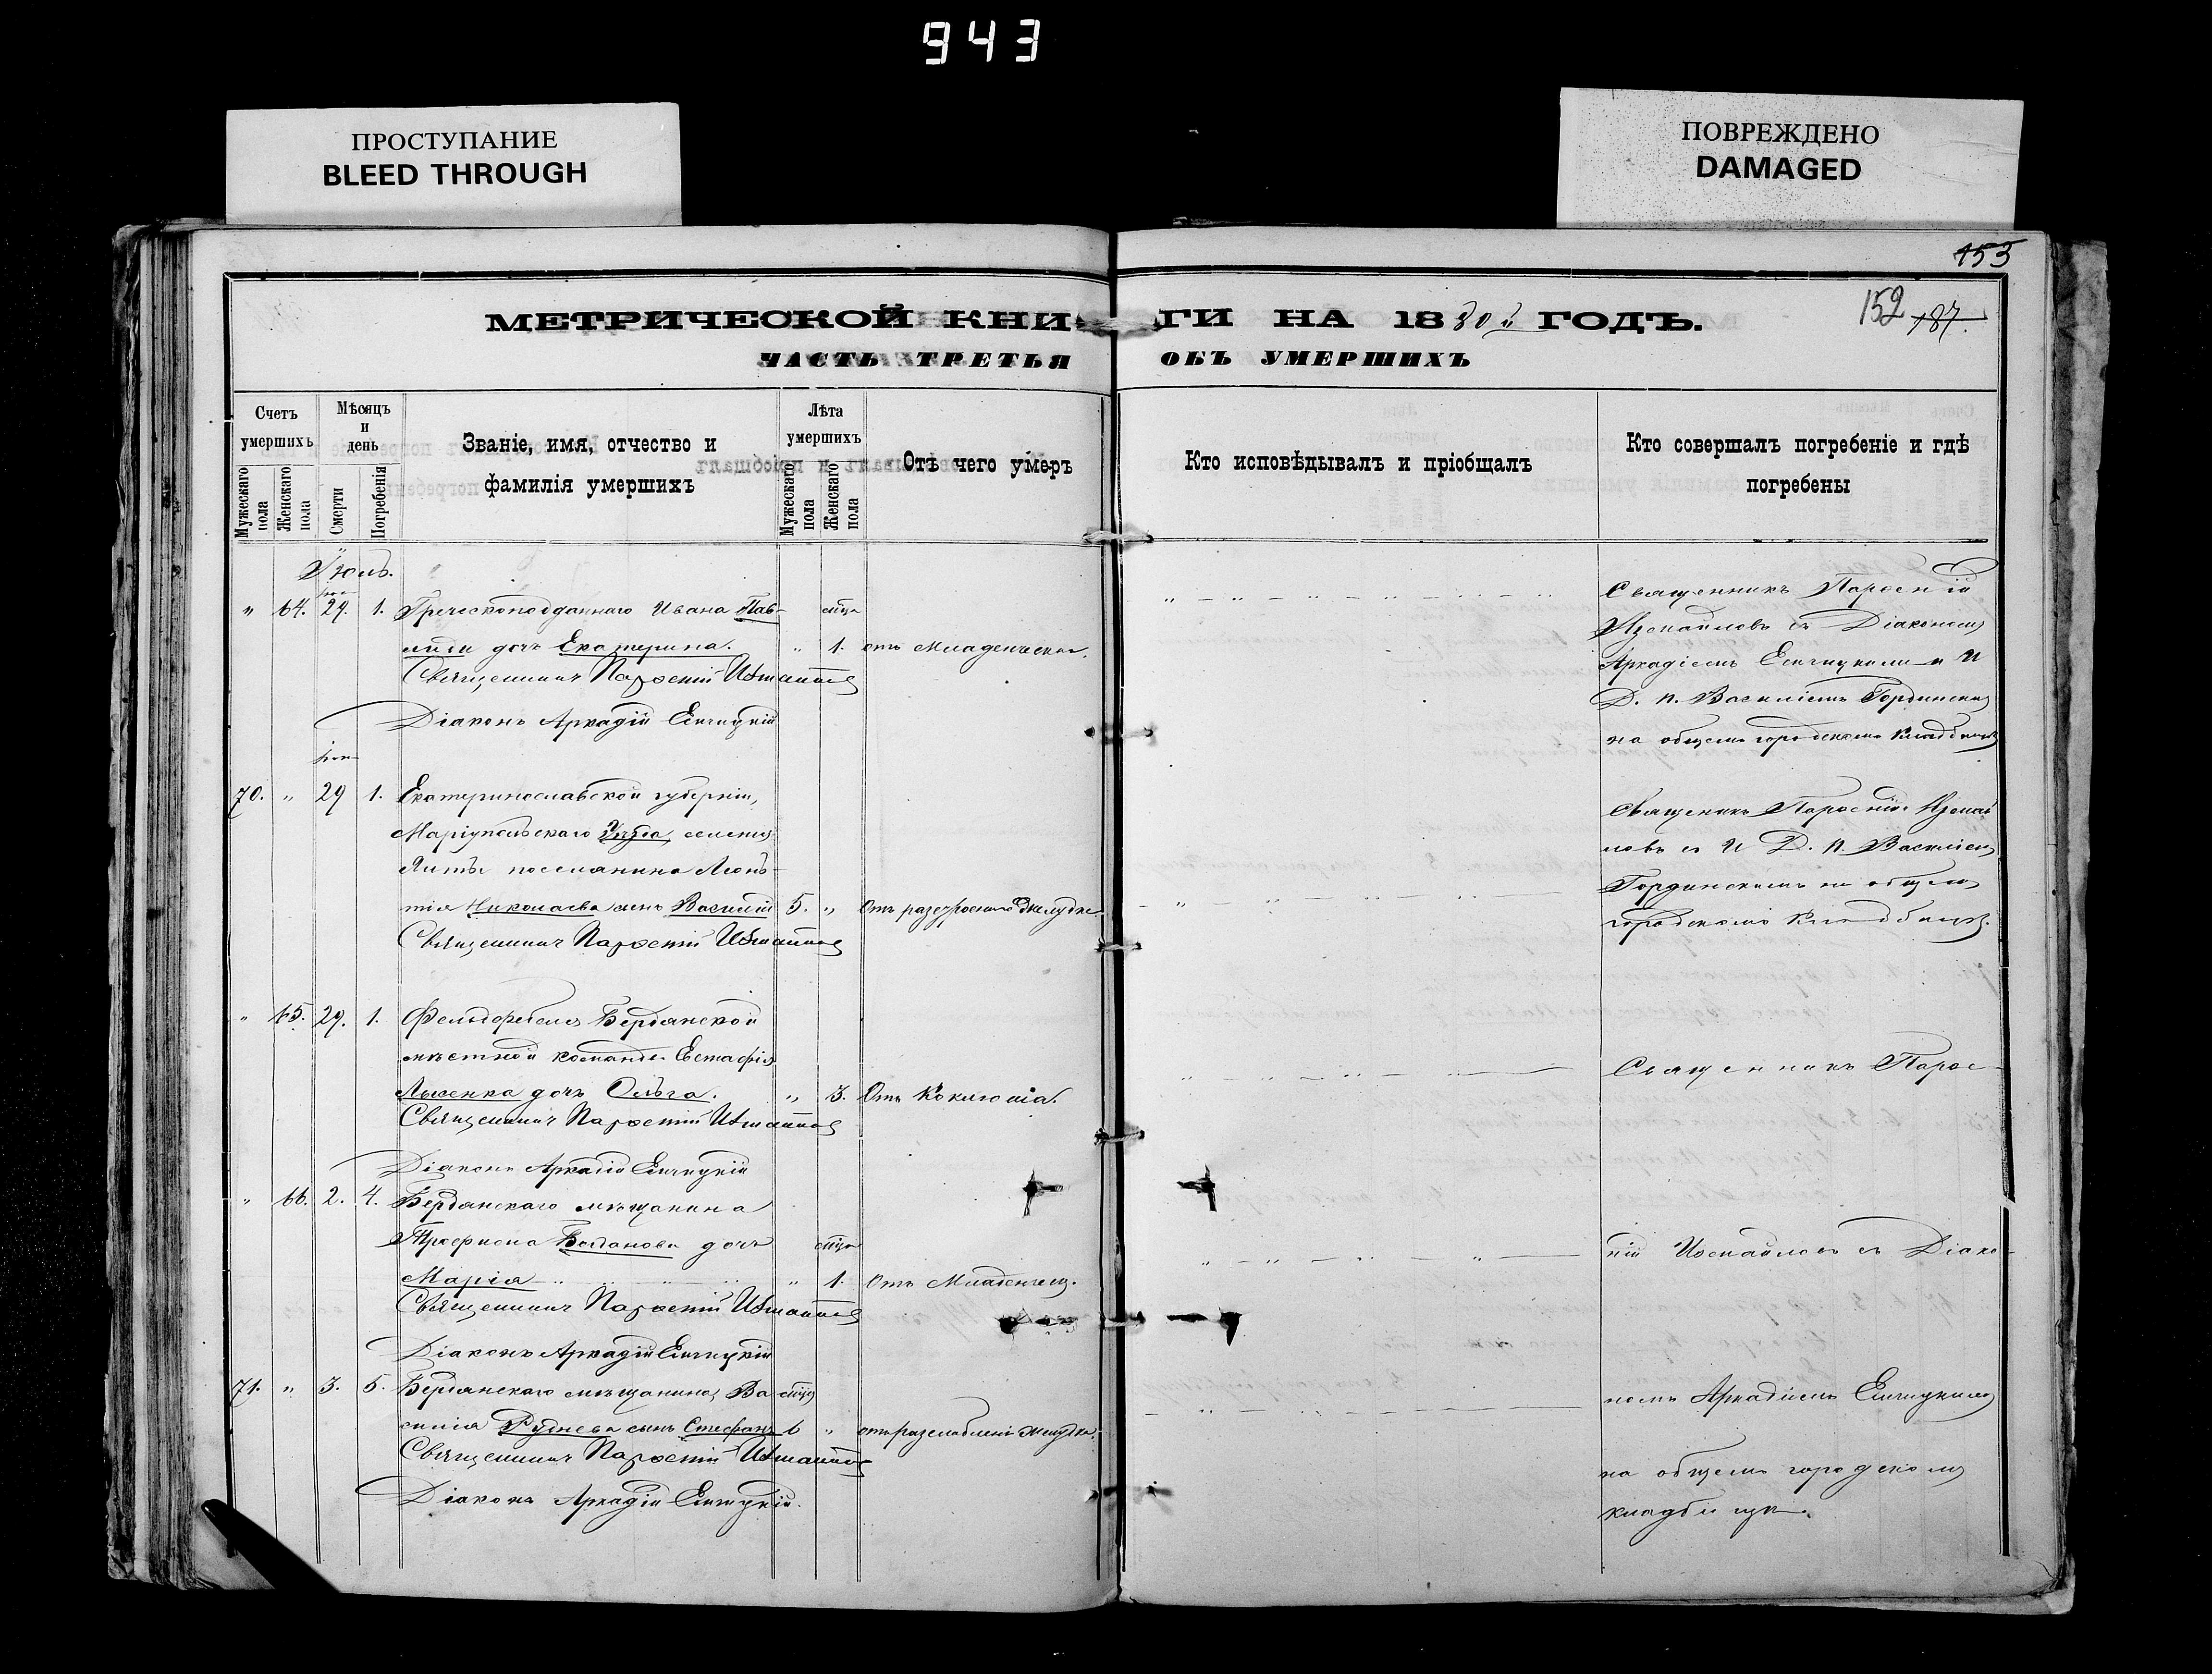 943
ПРОСТУПАНИЕ
BLEED THROUGH
ПОВРЕЖДЕНО
DAMAGED
153
152 187.
МЕТРИЧЕСКОЙ КНИ
ГИ НА 1880й ГОДЪ.
ЧАСТЬ ТРЕТЬЯ
ОБЪ УМЕРШИХЪ
Счетъ умершихъ
Мужескаго пола
Женскаго пола
Мѣсяцъ и день
Смерти
Погребенія
Званіе, имя, отчество и
фамилія умершихъ
Лѣта умершихъ
Мужескаго пола
Женскаго пола
Отъ чего умеръ
Кто исповѣдывалъ и пріобщалъ
Кто совершалъ погребеніе и гдѣ
погребены
Іюль.
" 64. 29. 1. Греческоподданнаго Ивана Пав-
лиди дочь Екатерина. " 1. отъ младенческ.
Священникъ Парѳеній Измаиловъ
Діаконъ Аркадій
Священникъ Парѳеній
Измаиловъ съ Діакономъ
Аркадіемъ и И
Д. п. Василіемъ Гординскимъ
на общемъ городскомъ кладбищѣ
70. " 29 1. Екатеринославской губерніи,
Маріупольскаго уѣзда, селенія
Ялты поселянина Леон-
тія Николаева сынъ Василій 5. " Отъ разстройства желудка.
Священникъ Парѳеній Измаиловъ
Священникъ Парѳеній Измаи
ловъ съ И Д. п. Василіемъ
Гординскимъ на общемъ
городскомъ кладбищѣ.
" 65. 29. 1. Фельдфебеля Бердянской
мѣстной команды Евстафія
Лысенка дочь Ольга. " 3. Отъ коклюша.
Священникъ Парѳеній Измаиловъ
Діаконъ Аркадій
Священникъ Парѳе-
" 66. 2. 4. Бердянскаго мѣщанина
Трофима Богданова дочь
Марія " 1. Отъ младенчец.
Священникъ Парѳеній Измаиловъ
Діаконъ Аркадій
ній Измаиловъ съ Діако-
71. " 3. 5. Бердянскаго мѣщанина Ва
силія Руднева сынъ Стефанъ 6 " отъ разслабленія желудка.
Священникъ Парѳеній Измаиловъ
Діаконъ Аркадій
номъ Аркадіемъ
на общемъ городскомъ
кладбищѣ.